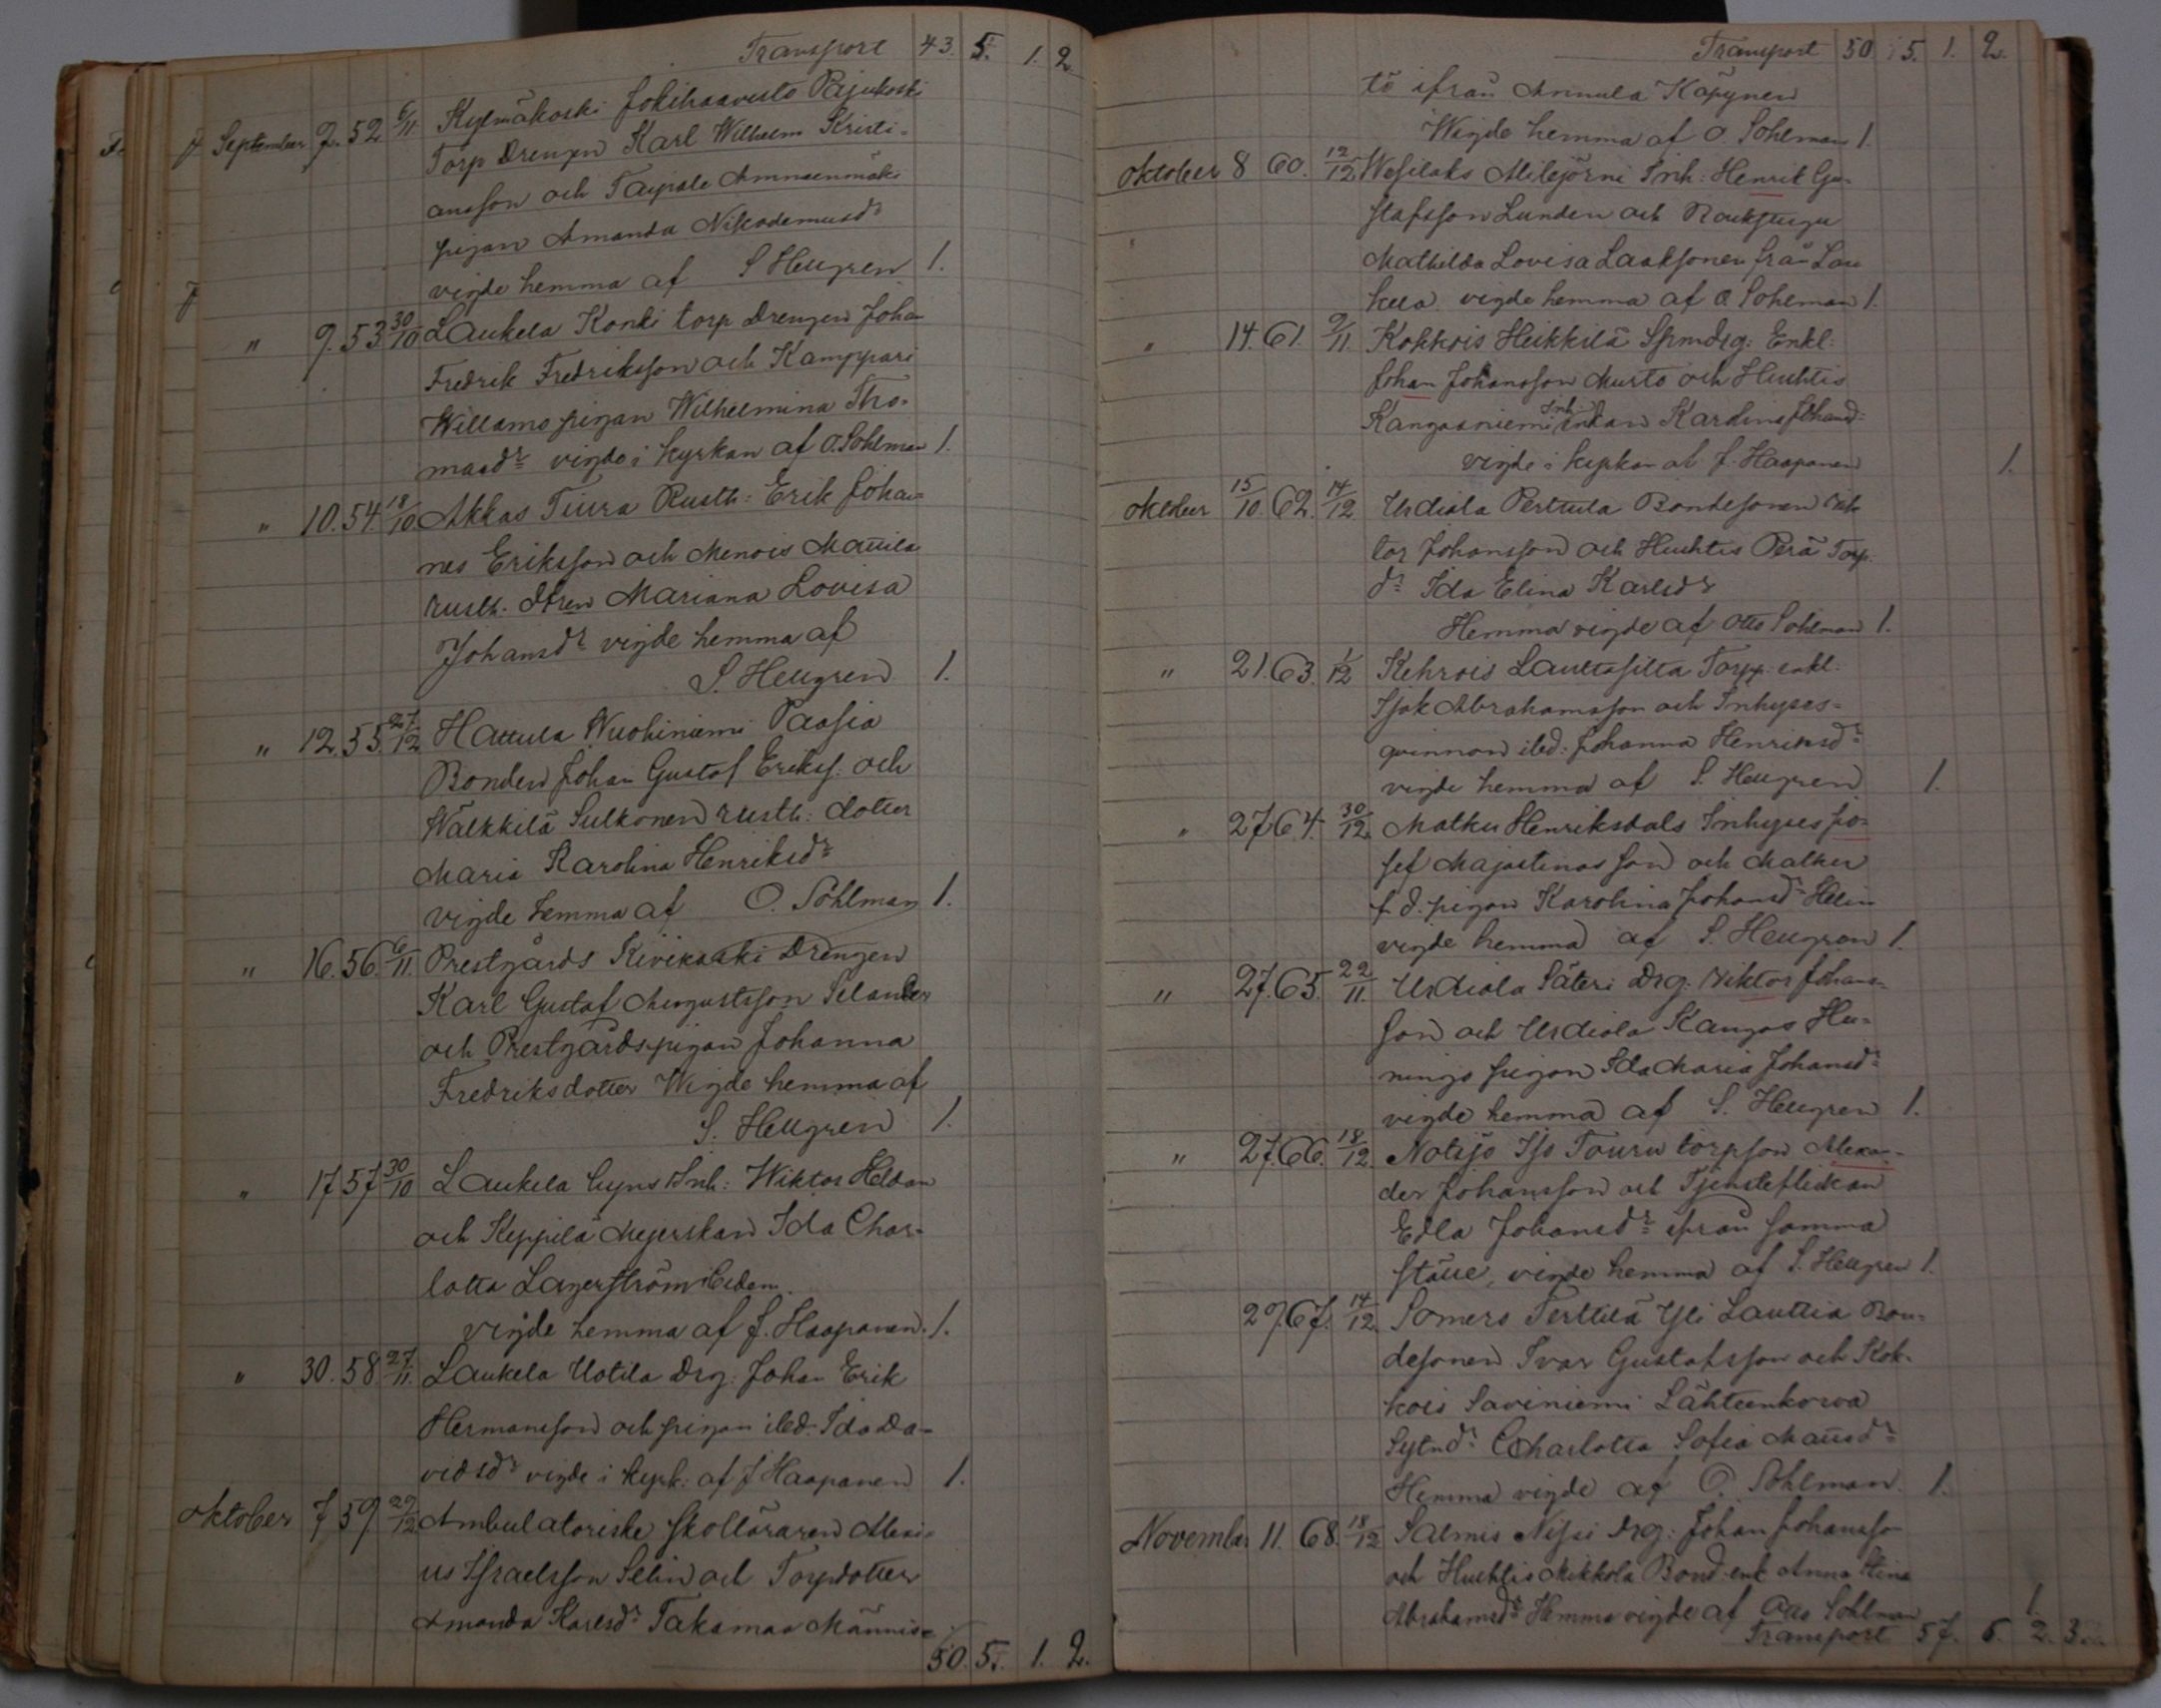 Transport 43. 5. 1. 2.
September 9. 52 6/11 Kylmäkoski Jokihaavisto Pajukoski
Torp Drengen Karl Wilhelm Kristi-
ansson och Taipale
pigan Amanda Nikodemusdr
vigde hemma af S Hellgren 1.
" 9. 53 30/10 Laukela Konki torp Drengen Johan
Fredrik Fredriksson och Kamppari
Willamo pigan Wilhelmina Tho-
masdr vigde i kyrkan af O. Sohlman 1.
" 10. 54. 18/10 Akkas Tiura Rusth: Erik Johan-
nes Eriksson och Menois Mattila
rusth. dtren Mariana Lovisa
Johansdr vigde hemma af
S. Hellgren 1.
" 12. 55. 27/12 Hattula Wuohiniemi Paasia
Bonden Johan Gustaf Eriks. och
Wälkkilä Sulkonen rusth: dotter
Maria Karolina Henriksdr
vigde hemma af O. Sohlman 1.
" 16. 56. 6/11. Prestgårds Kivikoski Drengen
Karl Gustaf Augustsson Selander
och Prestgårdspigan Johanna
Fredriksdotter Wigde hemma af
S. Hellgren 1.
" 17 57 30/10 Laukela Inh: Wiktor Heldan
och Keppilä Mejerskan Ida Char-
lotta Lagerström
vigde hemma af J. Haapanen. 1.
" 30. 58 27/11. Laukela Uotila Drg: Johan Erik
Hermansson och pigan ibd. Ida Da-
vidsdr vigde i kyrk: af J Haapanen 1.
Oktober 7 59 29/12 Ambulatoriske skolläraren Alexi-
us Israelsson Selin och Torpdotter
Amanda Karlsdr Takamaa Männis-
50. 5. 1. 2.
Transport 50 5. 1. 2.
tö ifrån Annula Käpynen
Wigde hemma af O. Sohlman 1.
Oktober 8 60. 12/12 Wesilaks Inh: Henrik Gu-
stafsson Lunden och
Mathilda Lovisa Laaksonen från Lau
kela vigde hemma af O Sohlman 1.
" 14. 61. 9/11. Kokkois Heikkilä Enkl:
Johan Johansson Murto och Huhtis
Kangasniemi Inh enkan Karolina Johansd=
vigde i kyrkan af J. Haapanen 1.
Oktober 15/10. 62. 14/12. Urdiala Perttula Bondesonen Vik
tor Johansson och Huhtis Perä Torp.
dr Ida Elina Karlsdr
Hemma vigde af Otto Sohlman 1.
" 21. 63. 1/12 Kehrois Lauttasilta Torpp. enkl.
Isak Abrahamsson och Inhyses-
qvinnan ibd: Johanna Henriksdr
vigde hemma af S. Hellgren 1.
" 27. 64. 30/12. Matku Henriksdals Inhyses Jo-
sef Majastinasson och Matku
f. d. pigan Karolina Johansdr Helin
vigde hemma af S. Hellgren 1.
" 27. 65. 22/11. Urdiala Säteri Drg. Viktor Johans-
son och Urdiala Kangas Hen-
nings pigan Ida Maria Johansdr
vigde hemma af S. Hellgren 1.
" 27. 66. 18/12. Notsjö Iso Touru torpson Alexan-
der Johansson och Tjensteflickan
Edla Johansdr ifrån samma
ställe, vigde hemma af S. Hellgren 1.
29. 67. 14/12. Somero Terttilä Yli Lauttia Bon-
desonen Ivar Gustafsson och Kok-
kois Saviniemi Lähteenkorva
Sytndr Charlotta Sofia Mattsdr
Hemma vigde af O. Sohlman. 1.
November 11. 68. 18/12 Salmis Nissi Drg: Johan Johansson
och Huhtis Mikkola Bond. enk Anna Stina
Abrahamsdr Hemma vigde af Otto Sohlman 1.
Transport 57. 6. 2. 3.